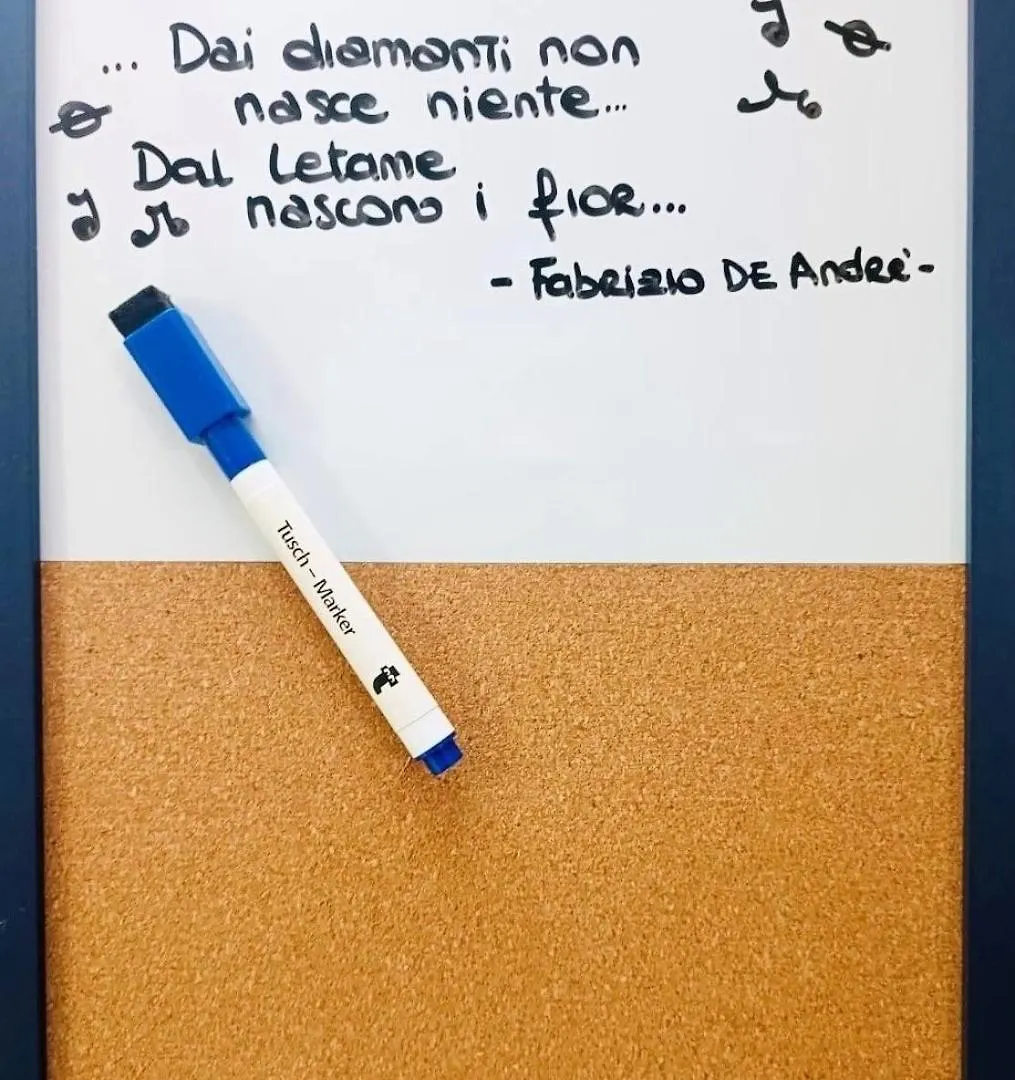 ... Dai diamanti non
nasce niente...
Dal letame
nascono i fior...
- Fabrizio DE Andrè -
Tusch – Marker